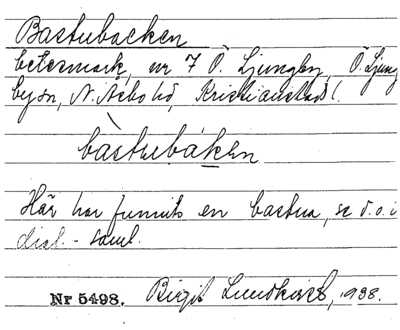 Bastubacken
betesmark, nr 7 Ö. Ljungby, Ö. Ljung
bysn, N. Åsbo hd, Kristianstads l.
bàstubáken
Här har funnits en bastua, se d.o. i
dial.-saml.
Nr 5498. Birgit Lundkvist, 1938.